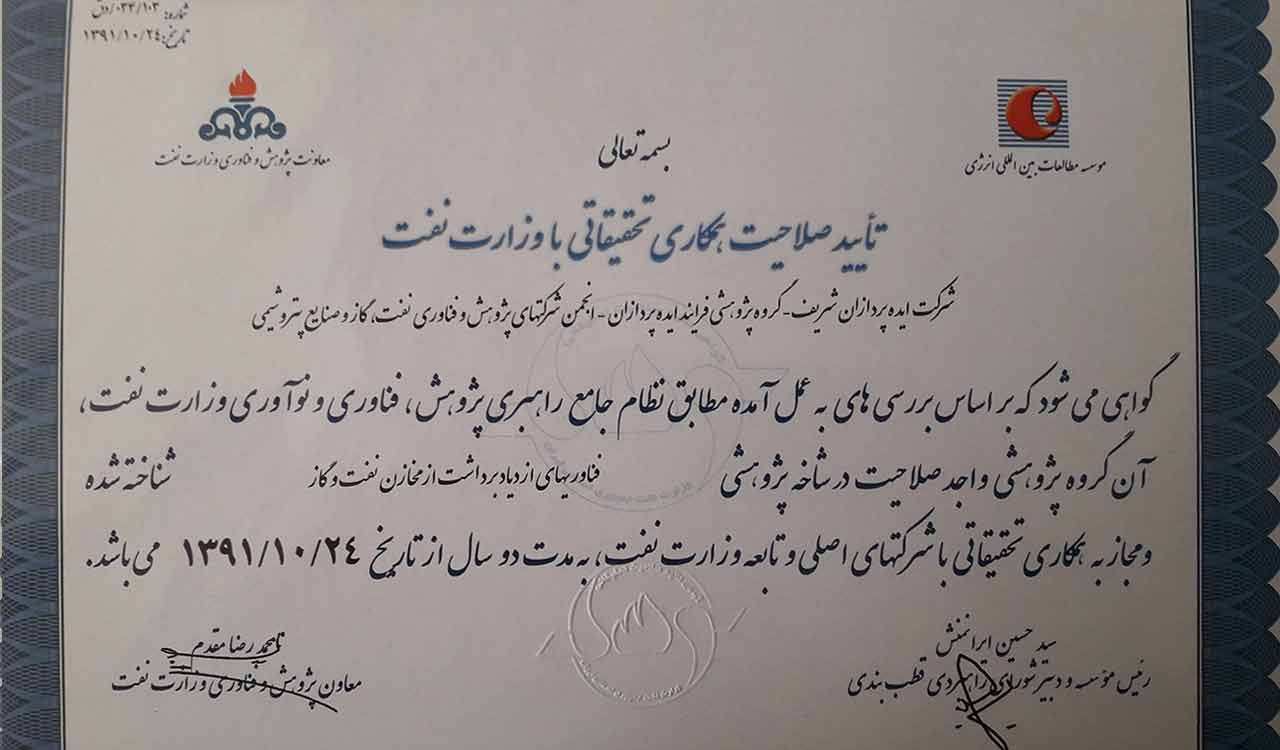 شماره: ۰۳۴/۱۰۳/دق
تاریخ: ۱۳۹۱/۱۰/۲۴
موسسه مطالعات بین المللی انرژی
معاونت پژوهش و فناوری وزارت نفت
بسمه تعالی
تأیید صلاحیت همکاری تحقیقاتی با وزارت نفت
شرکت ایده پردازان شریف - گروه پژوهشی فرایند ایده پردازان - انجمن شرکتهای پژوهش و فناوری نفت، گاز و صنایع پتروشیمی
گواهی می شود که بر اساس بررسی های به عمل آمده مطابق نظام جامع راهبری پژوهش، فناوری و نوآوری وزارت نفت،
آن گروه پژوهشی واجد صلاحیت در شاخه پژوهشی فناوریهای ازدیاد برداشت از مخازن نفت و گاز شناخته شده
و مجاز به همکاری تحقیقاتی با شرکتهای اصلی و تابعه وزارت نفت، به مدت دو سال از تاریخ ۱۳۹۱/۱۰/۲۴ می باشد.
سید حسین ایرانمنش
رئیس مؤسسه و دبیر شورای راهبردی قطب بندی
محمد رضا مقدم
معاون پژوهش و فناوری وزارت نفت